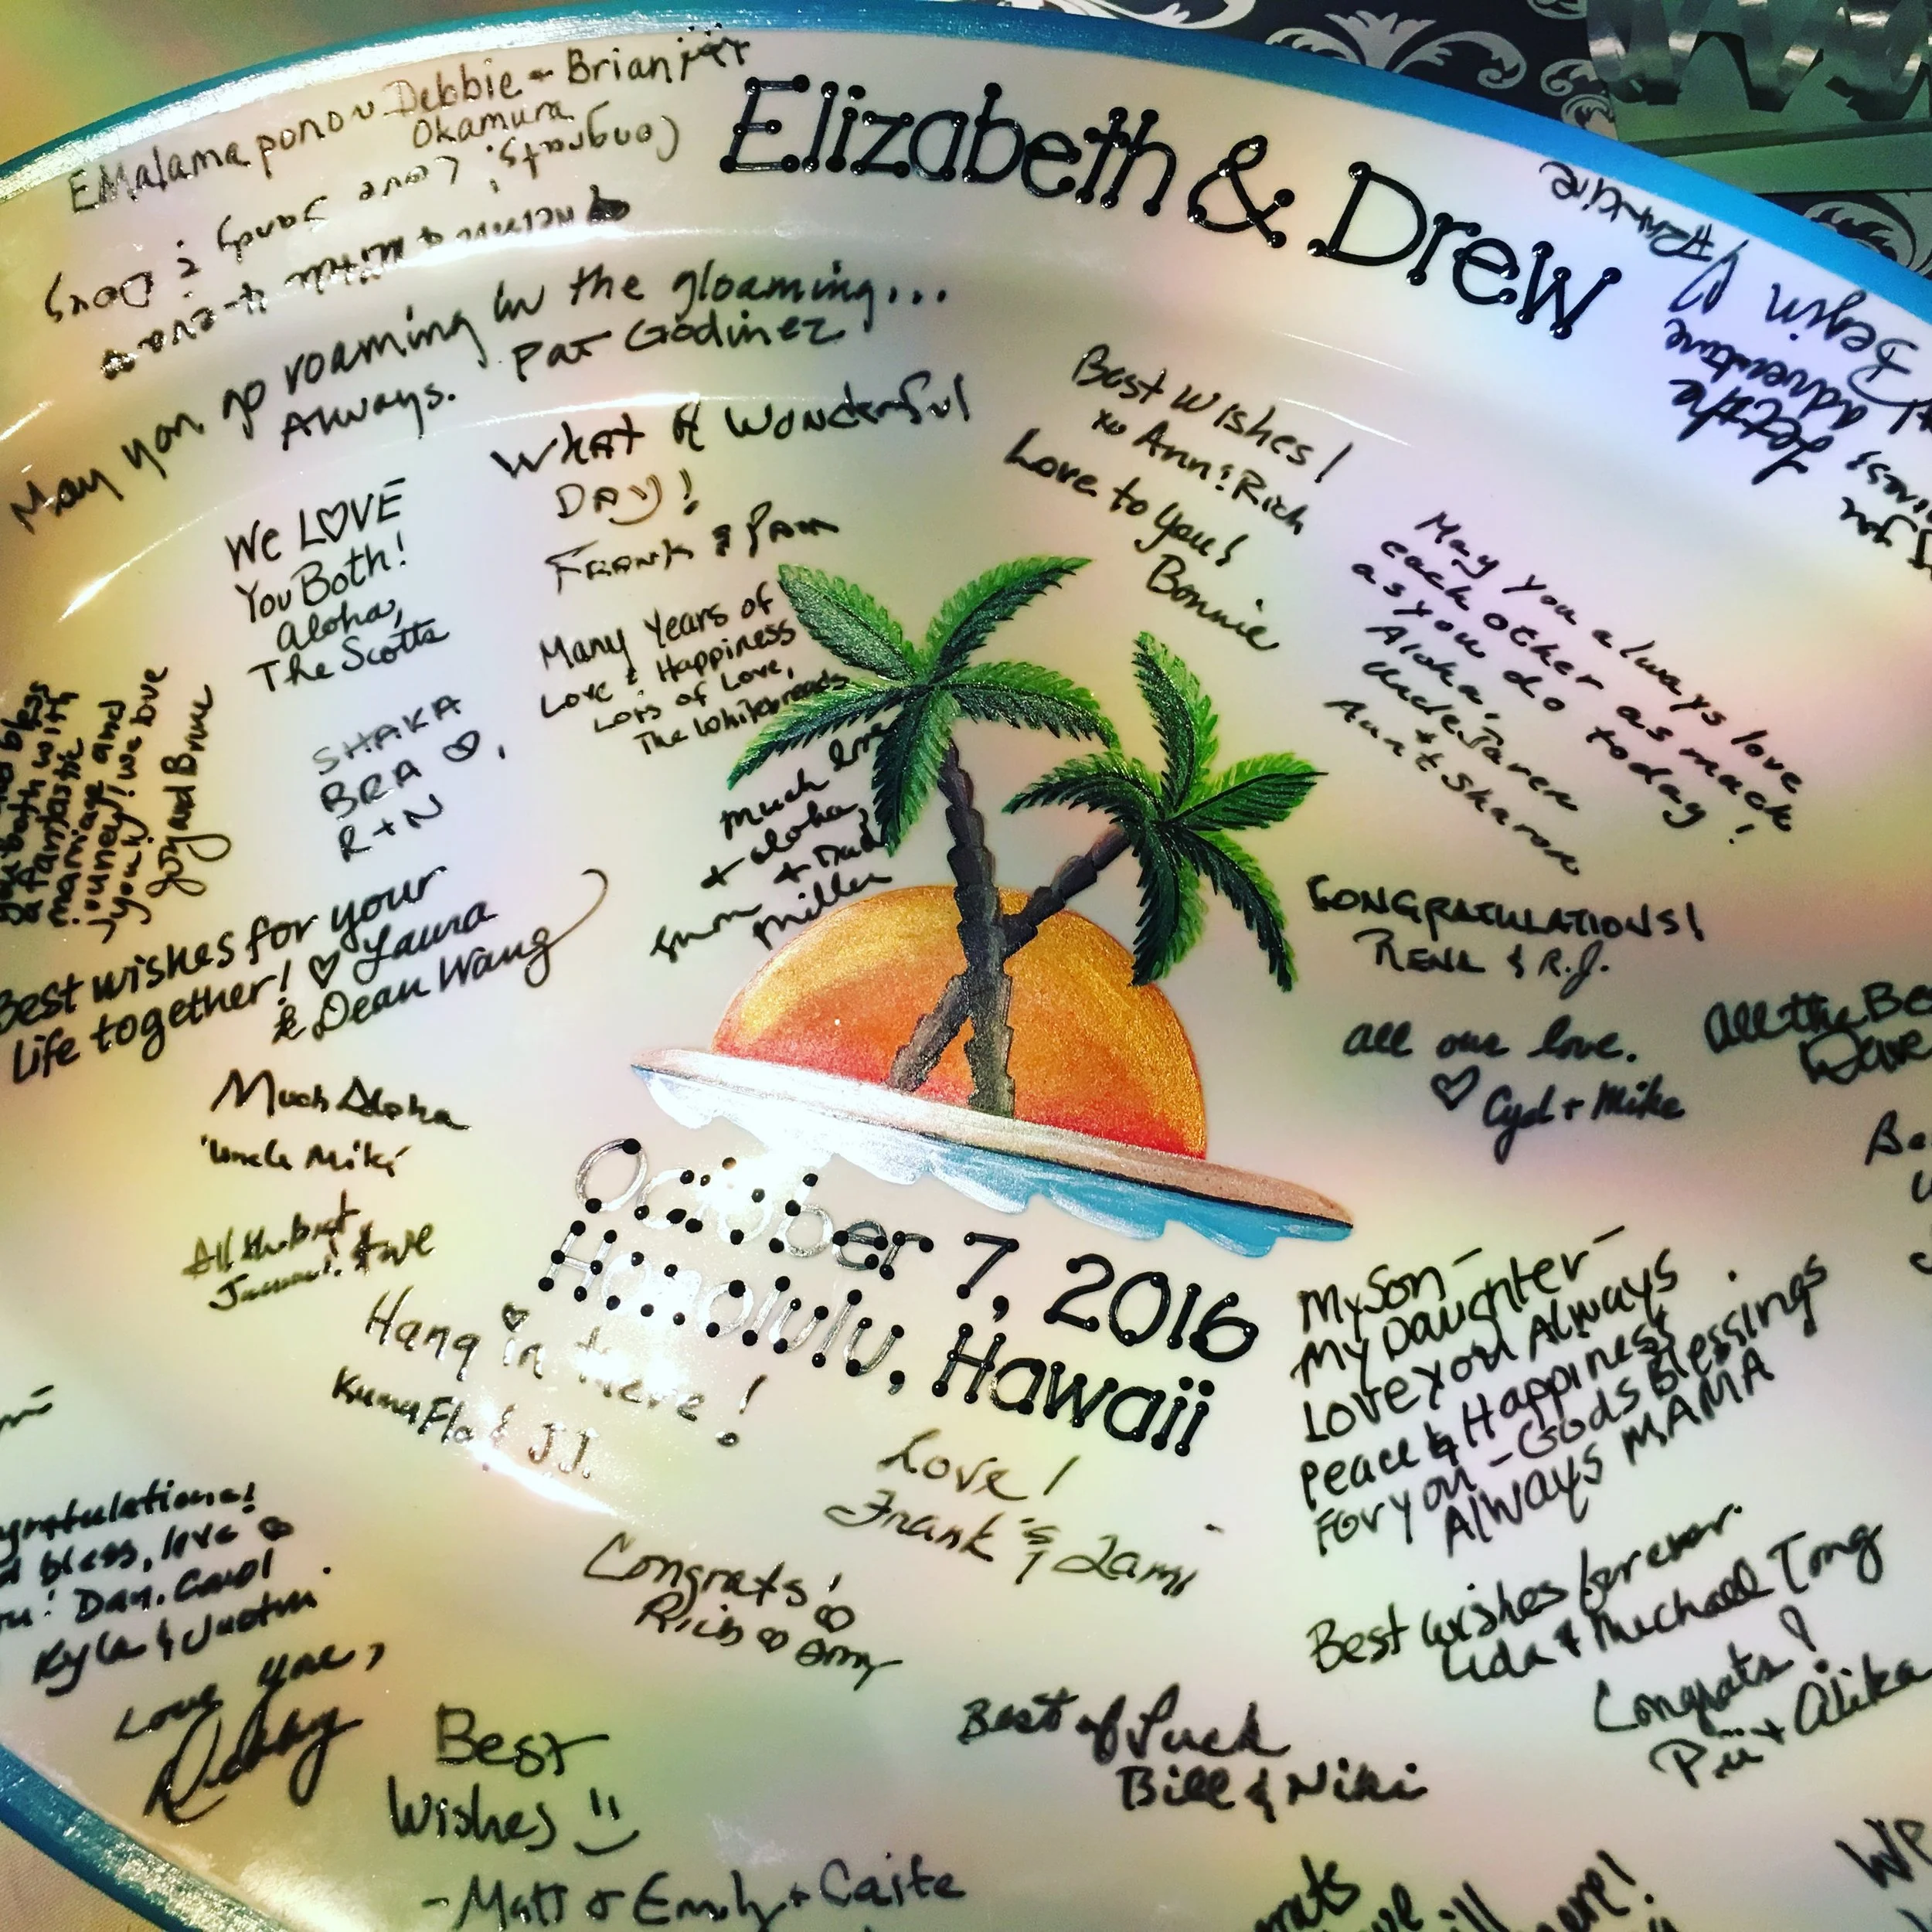 Elizabeth & Drew
E Malama pono ~ Debbie - Brian
Okamura
Congrats! Love Sandy & Doug
May you go roaming in the gloaming...
Always. Pat Godinez
What A Wonderful
DAY!
Frank & Pam
We LOVE
You Both!
Aloha,
The Scotts
Many Years of
Love & Happiness
Lots of Love,
The Whitebreads
Best Wishes!
Ann & Rich
Love to you!
Bonnie
May you always love
each other as much
as you do today!
Aloha,
Uncle
+
Aunt Sharon
Let the
adventure
Begin
you both with
a fantastic
marriage and
journey! we love
you!
Joy and Bruce
SHAKA
BRA
R + N
much love
+ aloha,
+ Dad
Miller
Best wishes for your
life together! ♡ Laura
& Dean Wang
CONGRATULATIONS!
& R.J.
all our love.
♡ Cyd + Mike
All the Be
Dave
Much Aloha
Uncle Miki
All the best
October 7, 2016
Honolulu, Hawaii
Hang in there!
Kuma Flo & J.J.
My Son -
My Daughter -
Love you Always.
Peace & Happiness
For you - Gods Blessings
Always MAMA
Love!
Frank & Lami
Congrats!
Rich Amy
bless, love
Dan, Carol
Kyle & Justin
Love you,
Debby
Best wishes forever.
Lida & Michael Tong
Congrats!
Pii + Alika
Best of Luck
Bill & Niki
Best
Wishes
- Matt + Emily + Caite